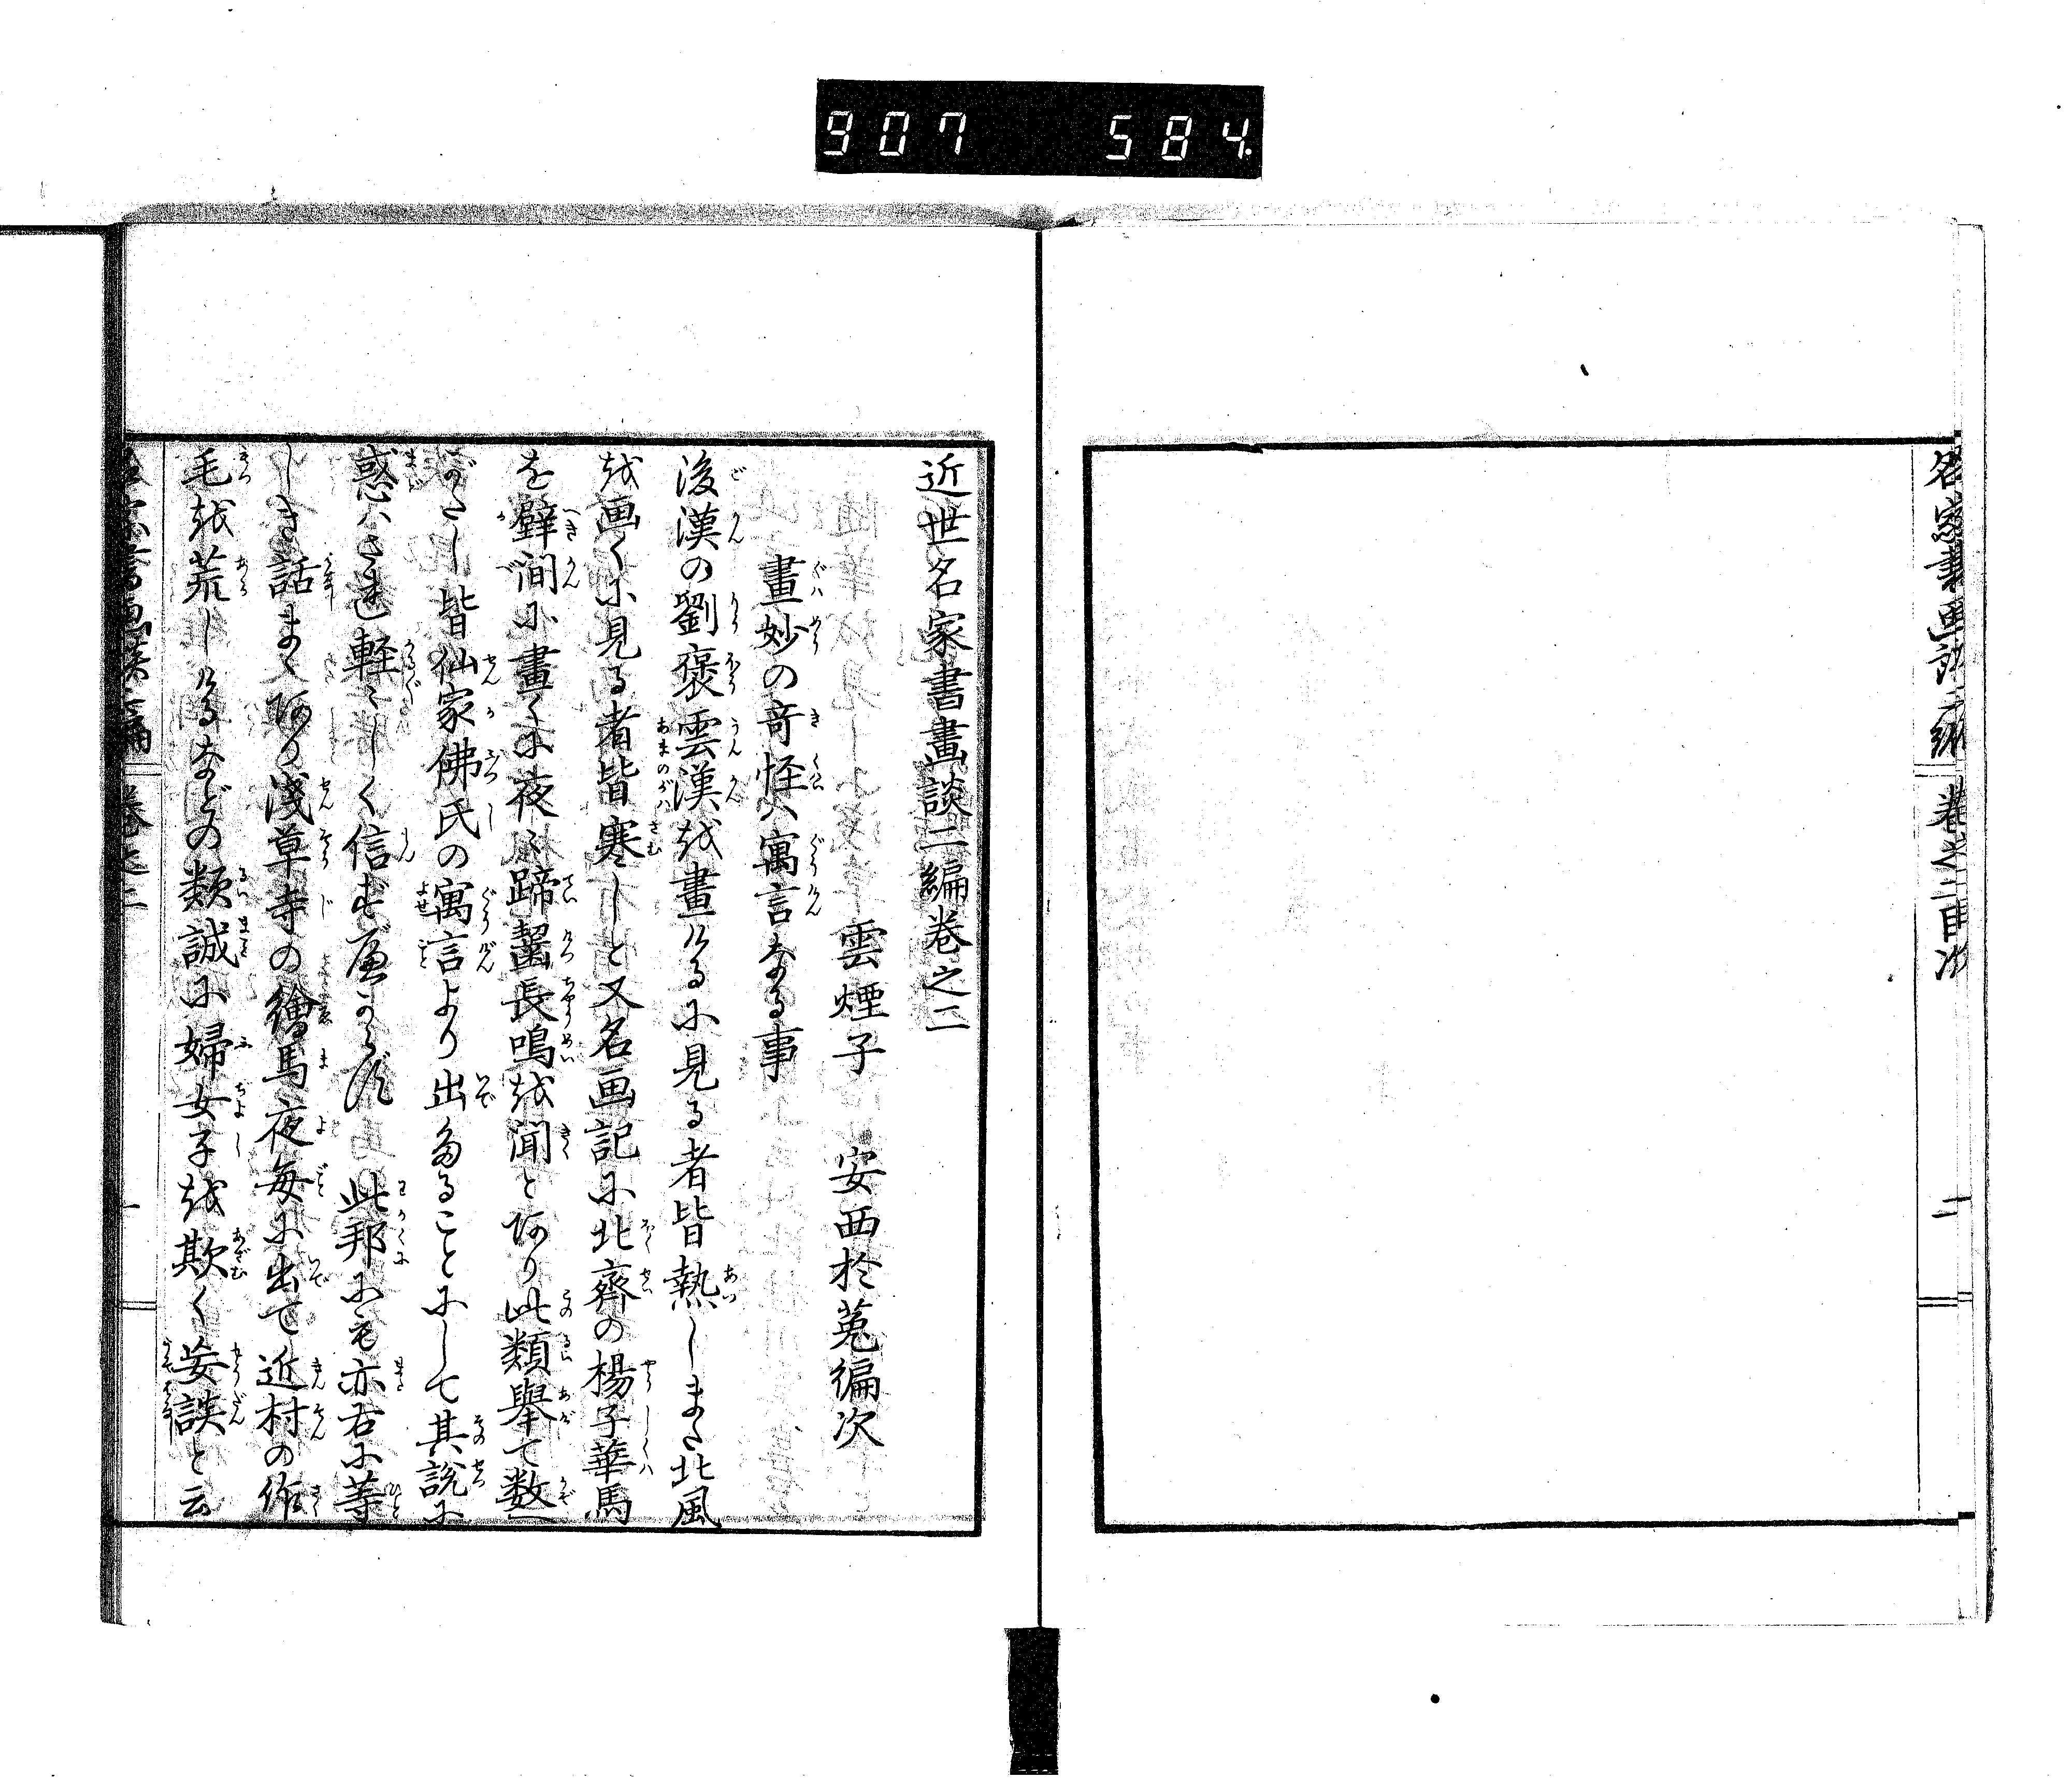 907 584
名家書画談二編 巻之二目次 二
近世名家書畫談二編巻之二
雲煙子 安西於菟編次
畫妙の竒怪ハ寓言なる事
後漢の劉褒雲漢越畫けるに見る者皆熱しまた北風
越画くに見る者皆寒しと又名画記に北齊の楊子華馬
を壁間に畫くに夜々蹄齧長鳴越聞とあり此類舉て数へ
がたし皆仙家佛氏の寓言より出ることにして其説に
惑ハされ軽々しく信ずべからず 此邦にも亦右に等
しき話まゝあり浅草寺の繪馬夜毎に出て近村の作
毛越荒しけるなどの類誠に婦女子越欺く妄談と云